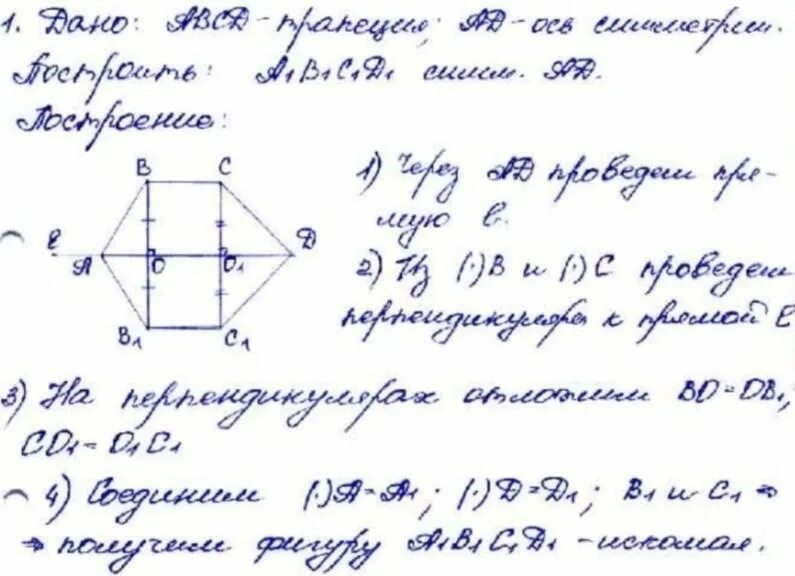 1. Дано: ABCD - трапеция; AD - ось симметрии.
Построить: A₁B₁C₁D₁ симм. AD.
Построение:
B C
ℓ A O O₁ D
B₁ C₁
1) Через AD проведем пря-
мую ℓ.
2) Из (·)B и (·)C проведем
перпендикуляры к прямой ℓ
3) На перпендикулярах отложим BO = OB₁;
CO₁ = O₁C₁
4) Соединим (·)A = A₁; (·)D = D₁; B₁ и C₁ ⇒
⇒ получим фигуру A₁B₁C₁D₁ - искомая.